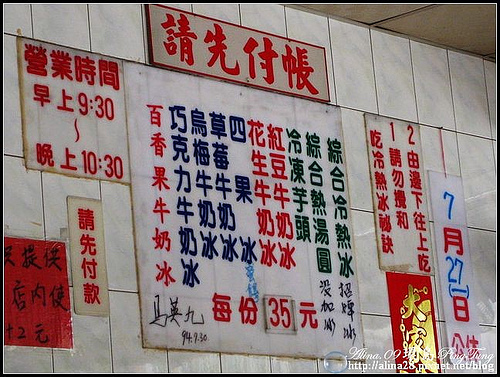 請先付帳
營業時間
早上9:30
~
晚上10:30
綜合冷熱冰
綜合熱湯圓
冷凍芋頭
紅豆牛奶冰
花生牛奶冰
四果冰
草莓牛奶冰
烏梅牛奶冰
巧克力牛奶冰
百香果牛奶冰
招牌冰
沒加冰
每份35元
馬英九
94.7.30
2由邊下往上吃
1請勿攪和
吃冷熱冰祕訣
7月27日
請先付款
提供
店內使
2元